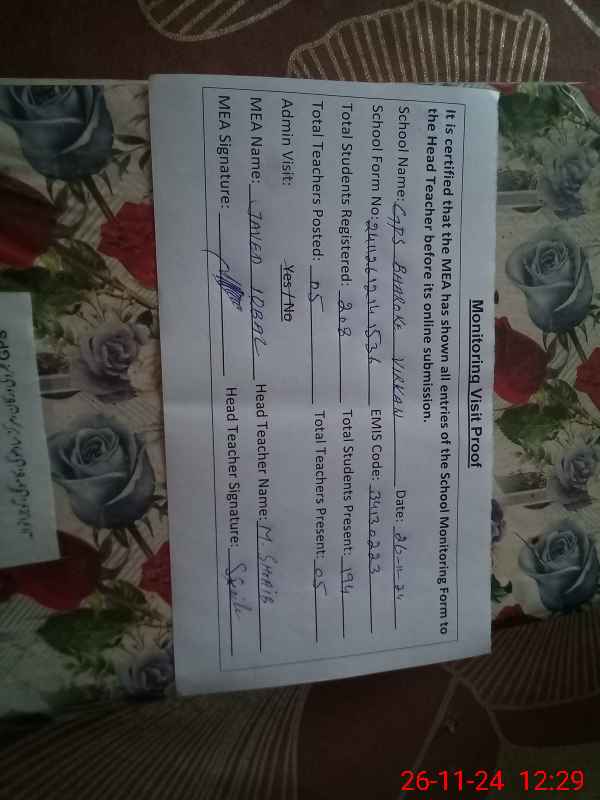 Monitoring Visit Proof
It is certified that the MEA has shown all entries of the School Monitoring Form to
the Head Teacher before its online submission.
School Name: GPS BHAROKE VIRKAN Date: 26-11-24
School Form No: EMIS Code: 34130223
Total Students Registered: 208 Total Students Present: 194
Total Teachers Posted: 05 Total Teachers Present: 05
Admin Visit: Yes / No
MEA Name: JAVED IQBAL Head Teacher Name: M. SHOAIB
MEA Signature: Head Teacher Signature:
26-11-24 12:29